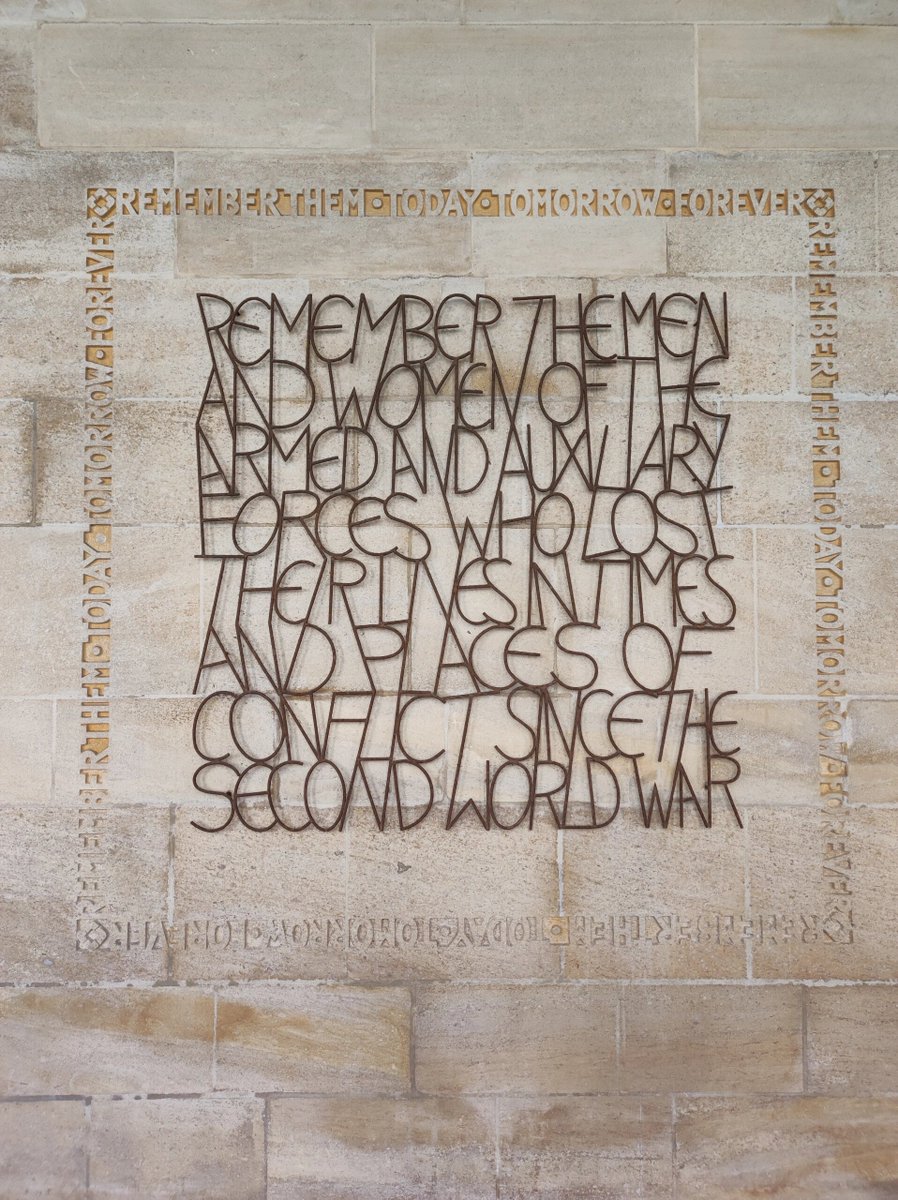 REMEMBER THEM · TODAY · TOMORROW · FOREVER
REMEMBER THEM · TODAY · TOMORROW · FOREVER
REMEMBER THEM · TODAY · TOMORROW · FOREVER
REMEMBER THEM · TODAY · TOMORROW · FOREVER
REMEMBER THE MEN
AND WOMEN OF THE
ARMED AND AUXILIARY
FORCES WHO LOST
THEIR LIVES IN TIMES
AND PLACES OF
CONFLICT SINCE THE
SECOND WORLD WAR